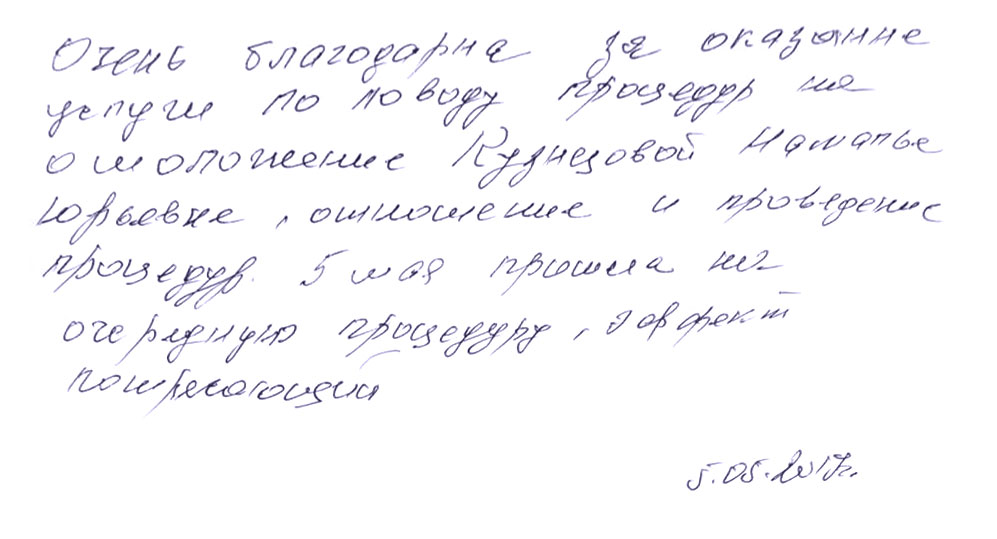 Очень благодарна за оказанне
услуги по поводу процедур на
омоложение Кузнецовой Наталье
Юрьевне, отношение и проведение
процедур. 5 мая пришла на
очередную процедуру, эффект
потресающий
5.05.2017г.